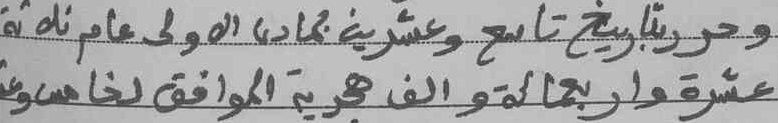 وحرر بتاريخ تاسع وعشرين جمادى الاولى عام ثلاثة
عشرة واربعمائة و الف هجرية الموافق لخامس وعش